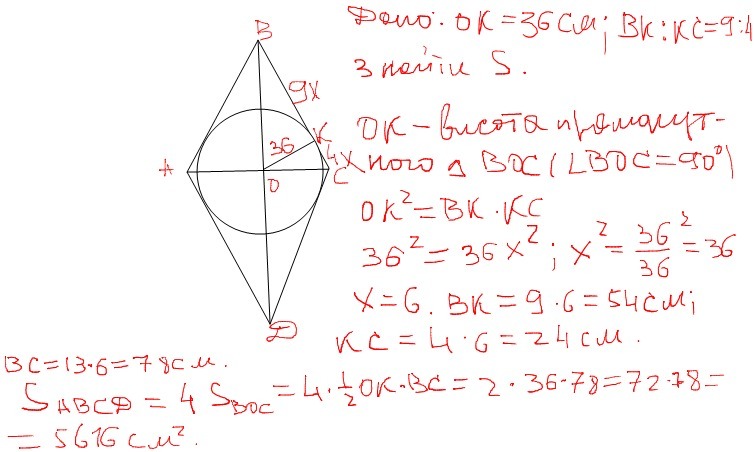 B
9х
K
36
4х
A
O
C
D
Дано: OK = 36 см; BK:KC=9:4
Знайти S.
OK – висота прямокут-
ного Δ BOC (∠BOC=90°)
OK² = BK · KC
36² = 36x²; x² = 36²/36 = 36
x = 6. BK = 9 · 6 = 54 см;
KC = 4 · 6 = 24 см.
BC = 13·6 = 78 см.
S ABCD = 4 S BOC = 4 · 1/2 OK · BC = 2 · 36 · 78 = 72 · 78 =
= 5616 см².